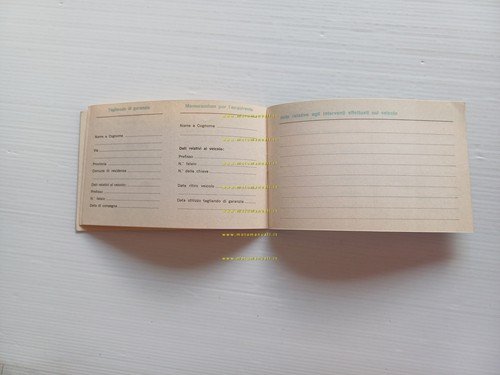 Tagliando di garanzia
Nome e Cognome
Via
Provincia
Comune di residenza
Dati relativi al veicolo:
Prefisso
N.° telaio
Data di consegna
Memorandum per l'acquirente
Nome e Cognome
Dati relativi al veicolo:
Prefisso
N.° telaio
N.° della chiave
Data ritiro veicolo
Data inoltro tagliando di garanzia
Note relative agli interventi effettuati sul veicolo
www.motomanuali.it
www.motomanuali.it
www.motomanuali.it
www.motomanuali.it
www.motomanuali.it
www.motomanuali.it